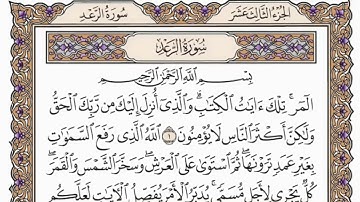 الجزء الثالث عشر
سورة الرعد
سورة الرعد
بسم الله الرحمن الرحيم
المٓرۚ تِلْكَ ءَايَٰتُ ٱلْكِتَٰبِۗ وَٱلَّذِىٓ أُنزِلَ إِلَيْكَ مِن رَّبِّكَ ٱلْحَقُّ
وَلَٰكِنَّ أَكْثَرَ ٱلنَّاسِ لَا يُؤْمِنُونَ ١ ٱللَّهُ ٱلَّذِى رَفَعَ ٱلسَّمَٰوَٰتِ
بِغَيْرِ عَمَدٍ تَرَوْنَهَاۖ ثُمَّ ٱسْتَوَىٰ عَلَى ٱلْعَرْشِۖ وَسَخَّرَ ٱلشَّمْسَ وَٱلْقَمَرَۖ
كُلٌّ يَجْرِى لِأَجَلٍ مُّسَمًّىۚ يُدَبِّرُ ٱلْأَمْرَ يُفَصِّلُ ٱلْءَايَٰتِ لَعَلَّكُم